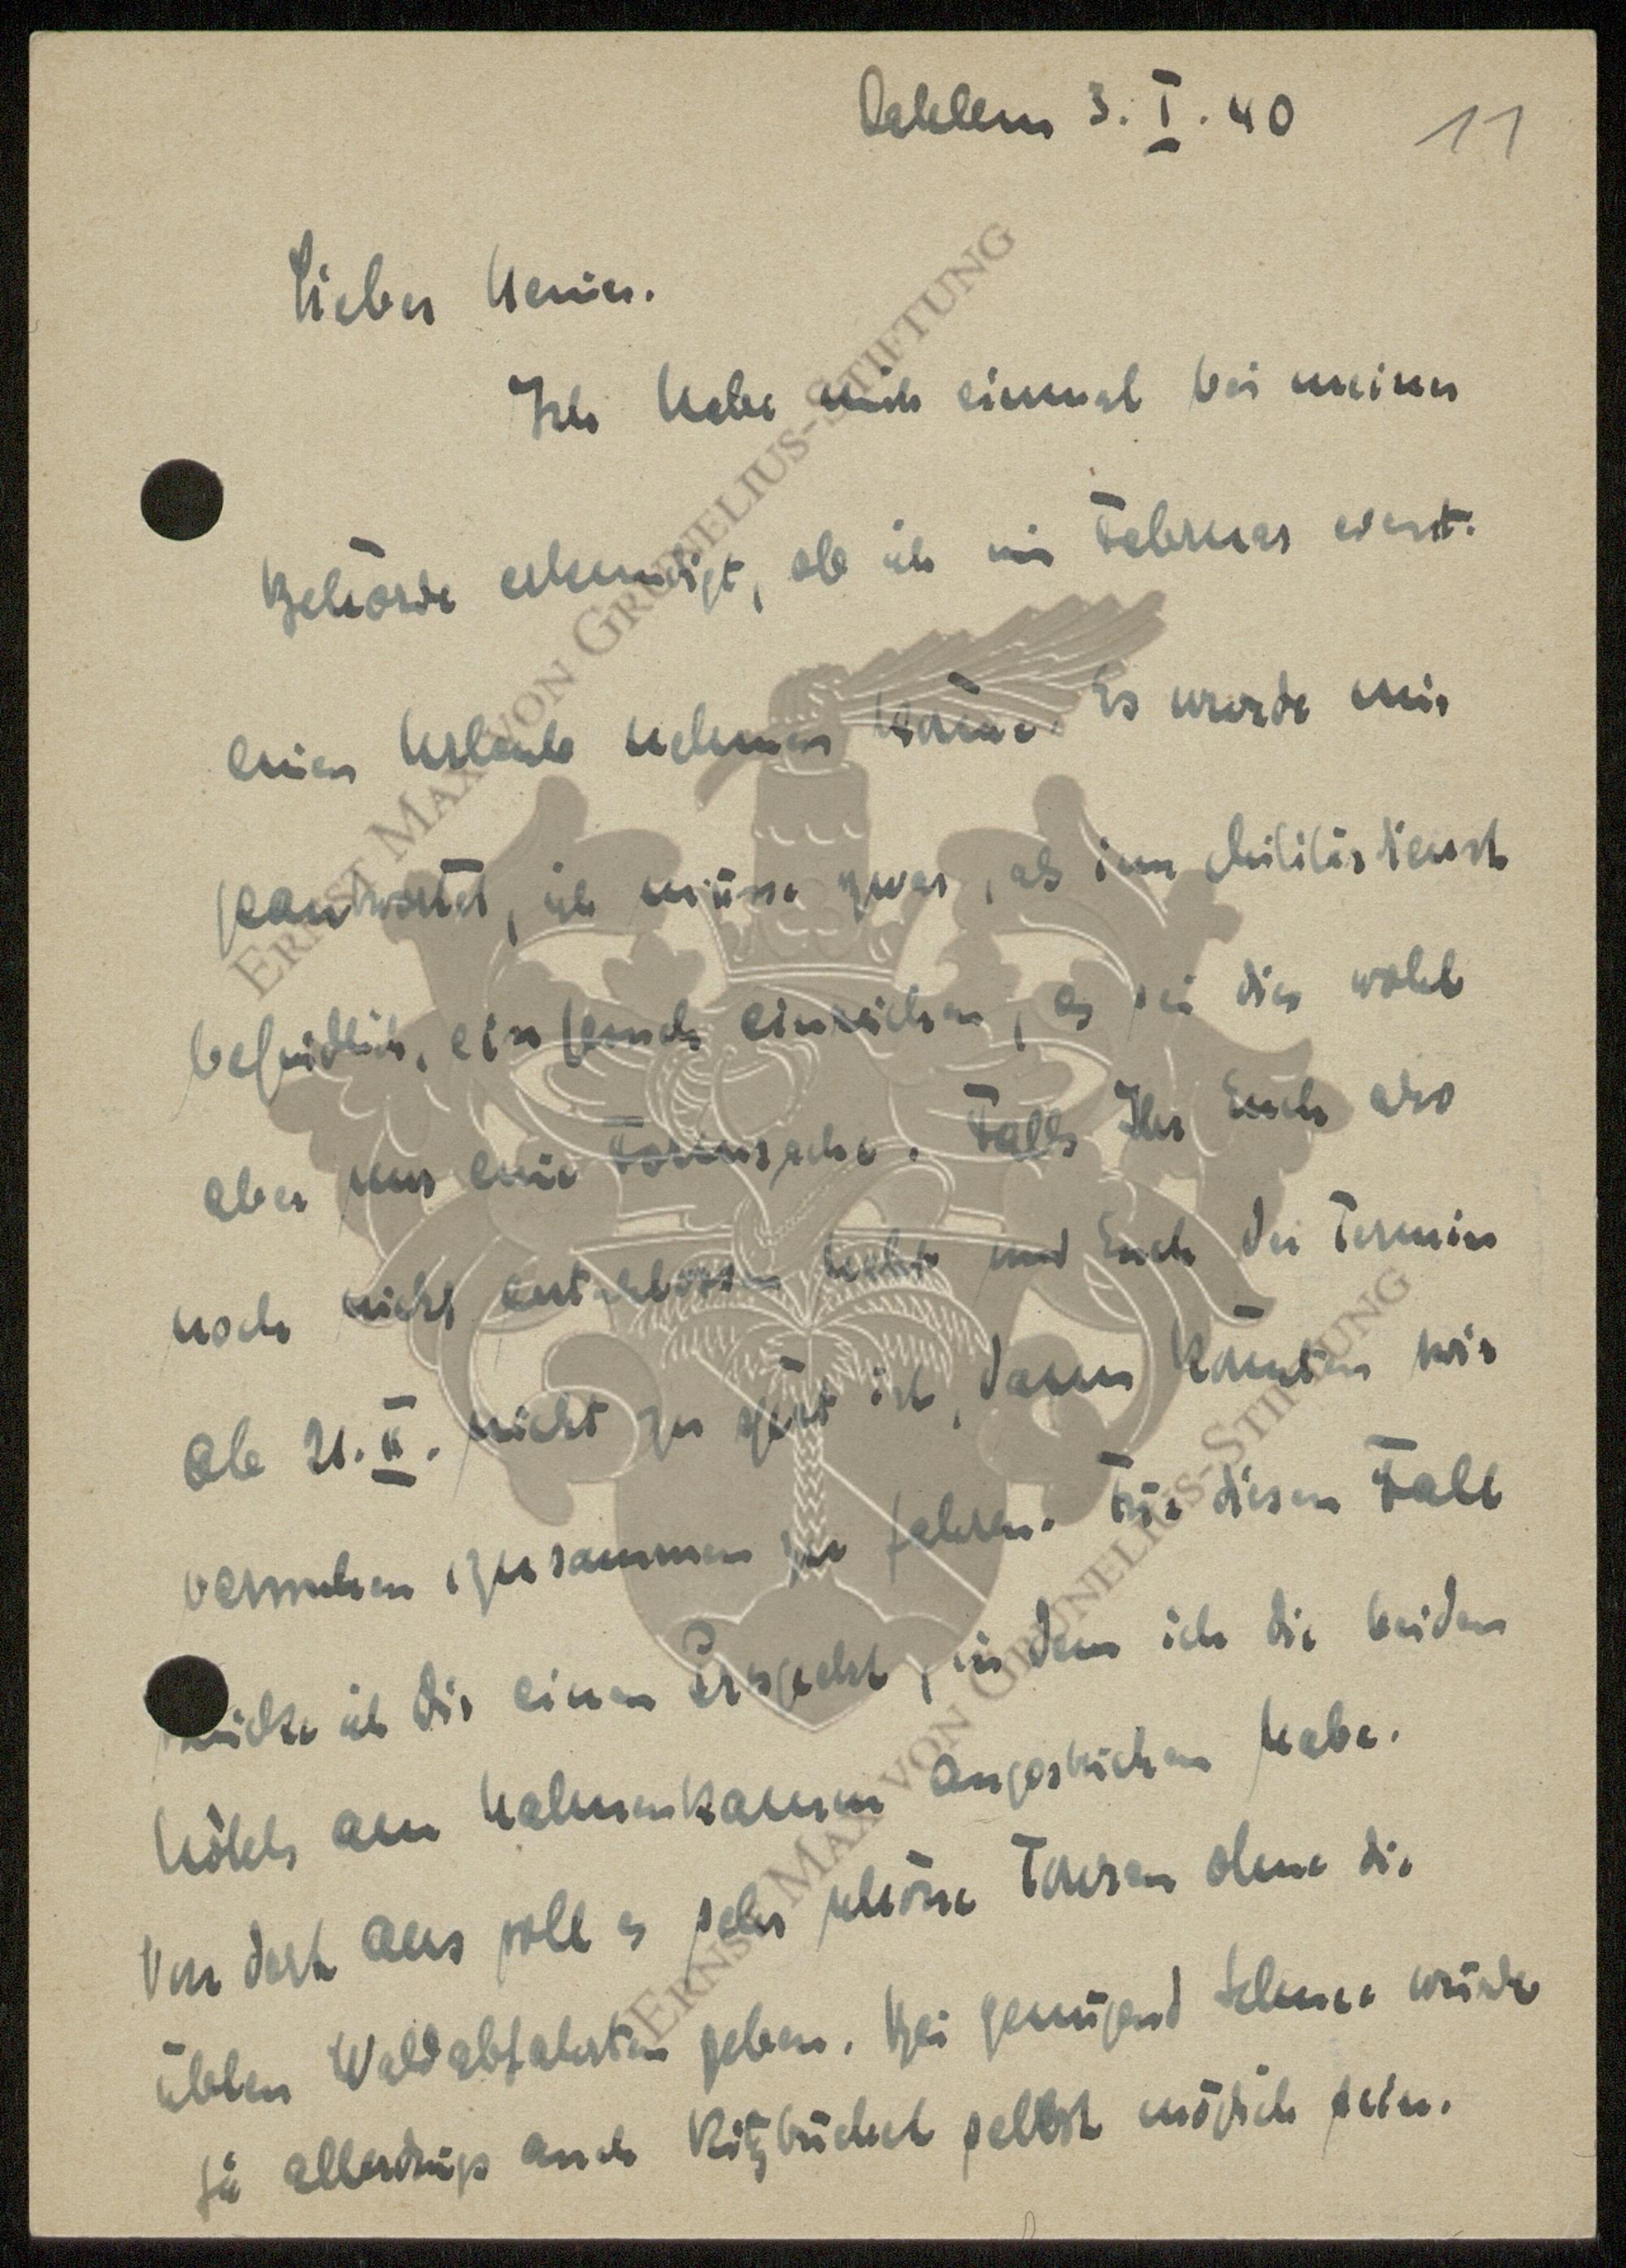 Dahlem 3. I. 40
11
Lieber Heiner.
Ich habe mich einmal bei meiner
Behörde erkundigt, ob ich im Februar event.
einen Urlaub nehmen könne. Es wurde mir
geantwortet, ich müsse zwar, als im Militärdienst
befindlich, ein Gesuch einreichen, es sei dies wohl
aber nur eine Formsache. Falls Ihr Euch also
noch nicht entschlossen habt und Euch der Termin
ab 21. II. nicht zu spät ist, dann könnten wir
versuchen zusammen zu fahren. Für diesen Fall
schicke ich Dir einen Prospekt, in dem ich die beiden
Hôtels am Hahnenkamm angestrichen habe.
Von dort aus soll es sehr schöne Touren ohne die
üblen Waldabfahrten geben. Bei genügend Schnee würde
ja allerdings auch Kitzbühel selbst möglich sein.
ERNST MAX VON GRUNELIUS-STIFTUNG
ERNST MAX VON GRUNELIUS-STIFTUNG